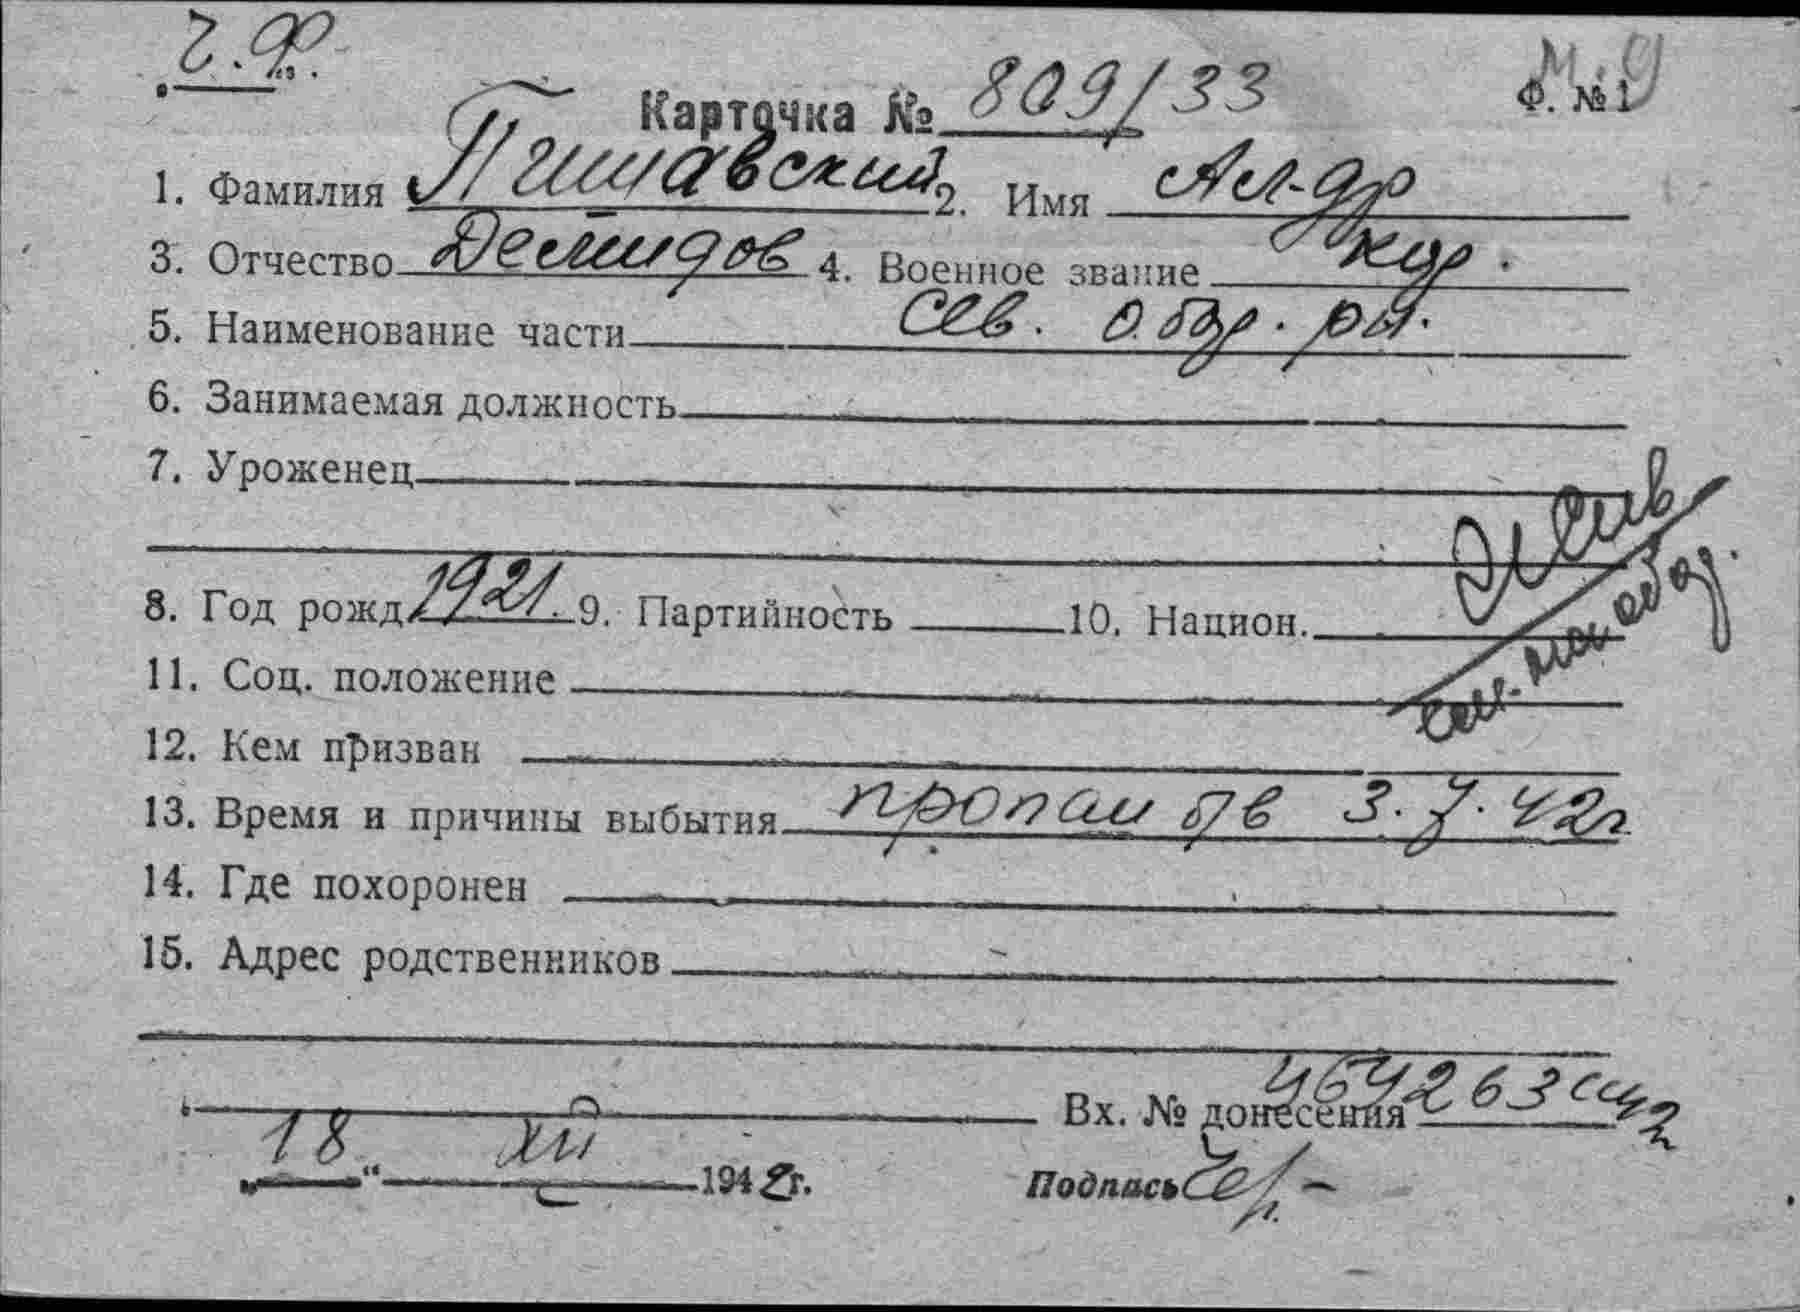 Ч.Ф.
М. 9
Карточка № 809/33
Ф. № 1
1. Фамилия Пишавский 2. Имя Ал-др
3. Отчество Демидов 4. Военное звание кр.
5. Наименование части Сев. о. бр. рн.
6. Занимаемая должность
7. Уроженец
Жив
8. Год рожд 1921. 9. Партийность 10. Национ.
11. Соц. положение
12. Кем призван
13. Время и причины выбытия пропал б/в 3.7.42г
14. Где похоронен
15. Адрес родственников
Вх. № донесения
"18" XII 1942г.
Подпись Чер.-